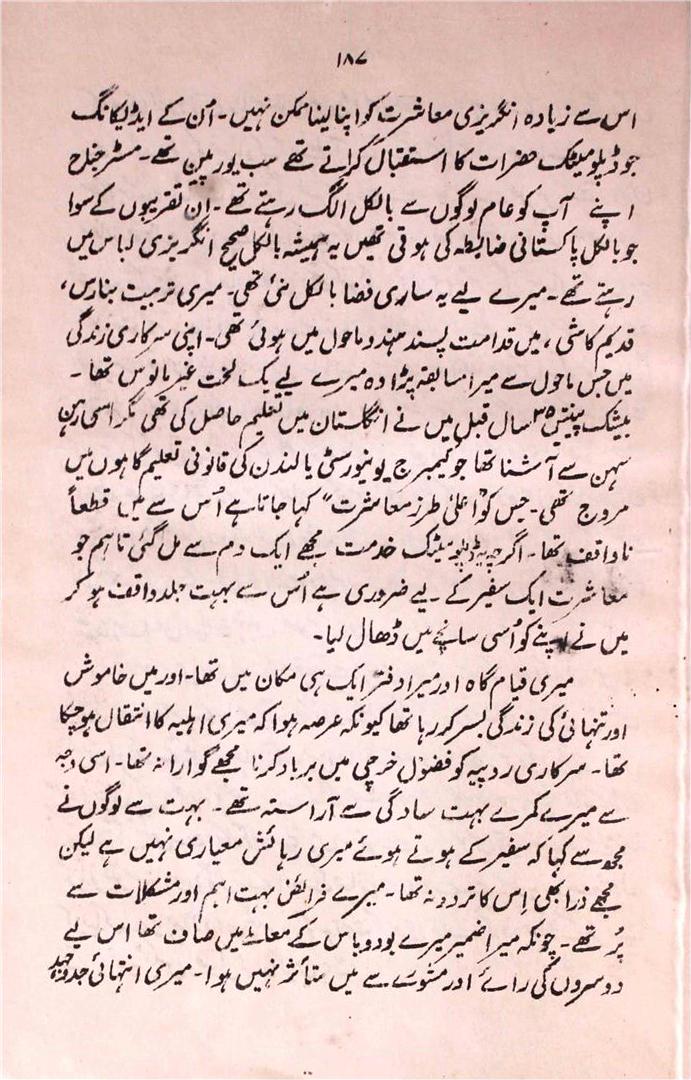 ۱۸۷
اس سے زیادہ انگریزی معاشرت کو اپنا لینا ممکن نہیں۔ اُن کے ایڈیکانگ
جو ڈپلومیٹک حضرات کا استقبال کراتے تھے سب یورپین تھے۔ مسٹر جناح
اپنے آپ کو عام لوگوں سے بالکل الگ رہتے تھے۔ اِن تقریبوں کے سوا
جو بالکل پاکستانی ضابطہ کی ہوتی تھیں یہ ہمیشہ بالکل صحیح انگریزی لباس میں
رہتے تھے۔ میرے لیے یہ ساری فضا بالکل نئی تھی۔ میری تربیت بنارس،
قدیم کاشی، میں قدامت پسند ہندو ماحول میں ہوئی تھی۔ اپنی سرکاری زندگی
میں جس ماحول سے میرا سابقہ پڑا وہ میرے لیے یک لخت غیر مانوس تھا۔
بیشک پینتیس ۳۵ سال قبل میں نے انگلستان میں تعلیم حاصل کی تھی مگر اسی رہن
سہن سے آشنا تھا جو کیمبرج یونیورسٹی یا لندن کی قانونی تعلیم گاہوں میں
مروج تھی۔ جس کو "اعلیٰ طرز معاشرت" کہا جاتا ہے اُس سے میں قطعاً
ناواقف تھا۔ اگرچہ یہ ڈپلومیٹک خدمت مجھے ایک دم سے مل گئی تاہم جو
معاشرت ایک سفیر کے لیے ضروری ہے اُس سے بہت جلد واقف ہو کر
میں نے اپنے کو اُسی سانچے میں ڈھال لیا۔
میری قیام گاہ اور میرا دفتر ایک ہی مکان میں تھا۔ اور میں خاموش
اور تنہائی کی زندگی بسر کر رہا تھا کیونکہ عرصہ ہوا کہ میری اہلیہ کا انتقال ہو چکا
تھا۔ سرکاری روپیہ کو فضول خرچی میں برباد کرنا مجھے گوارا نہ تھا۔ اسی وجہ
سے میرے کمرے بہت سادگی سے آراستہ تھے۔ بہت سے لوگوں نے
مجھ سے کہا کہ سفیر کے ہوتے ہوئے میری رہائش معیاری نہیں ہے لیکن
مجھے ذرا بھی اِس کا تردد نہ تھا۔ میرے فرائض بہت اہم اور مشکلات سے
پُر تھے۔ چونکہ میرا ضمیر میرے بود و باس کے معاملے میں صاف تھا اس لیے
دوسروں کی رائے اور مشورے سے میں متاثر نہیں ہوا۔ میری انتہائی جدوجہد